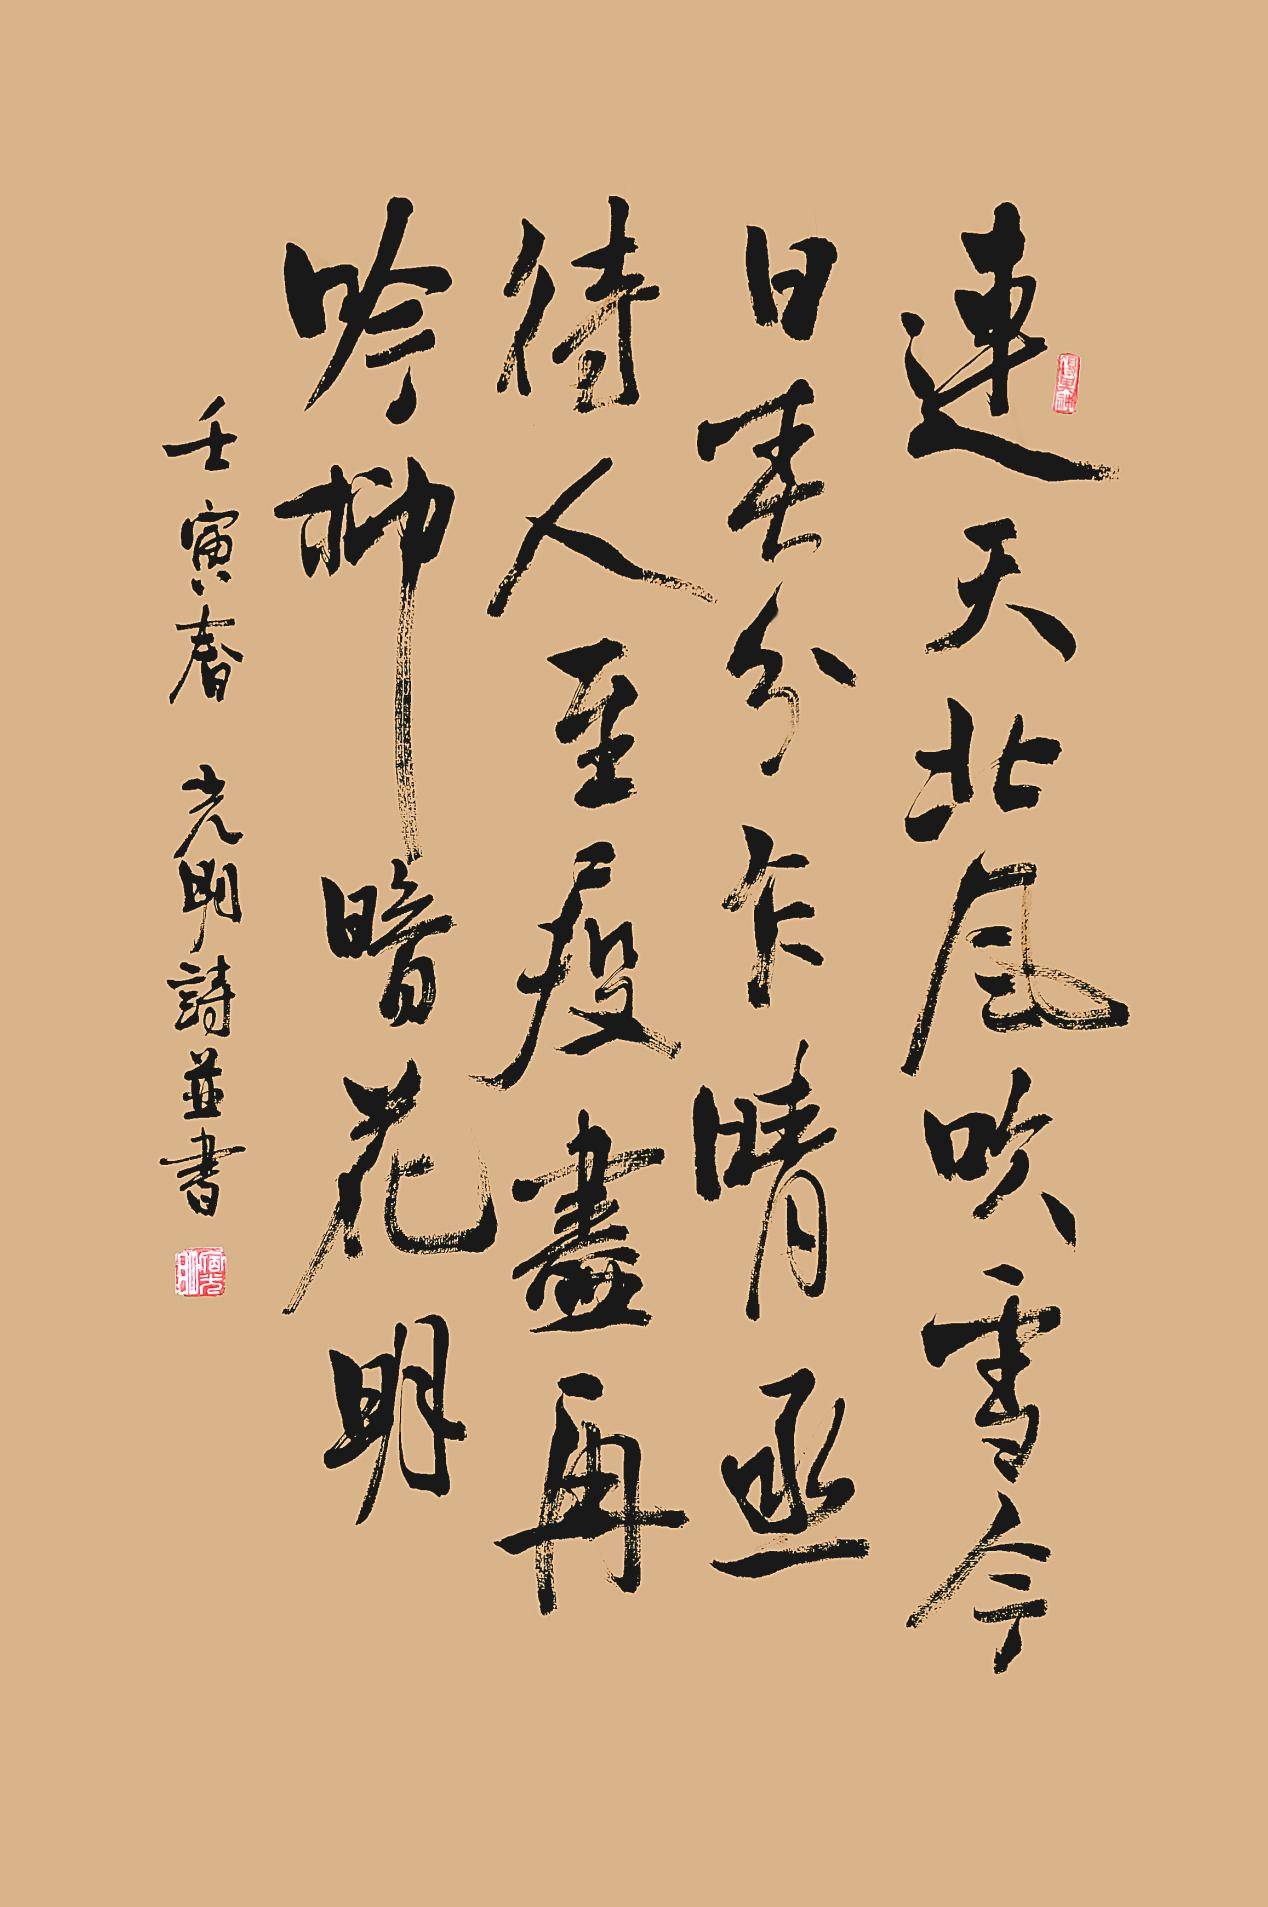 連天北風吹雪今
日春分乍晴亟
待人至疫盡再
吟柳暗花明
壬寅春 光明詩並書